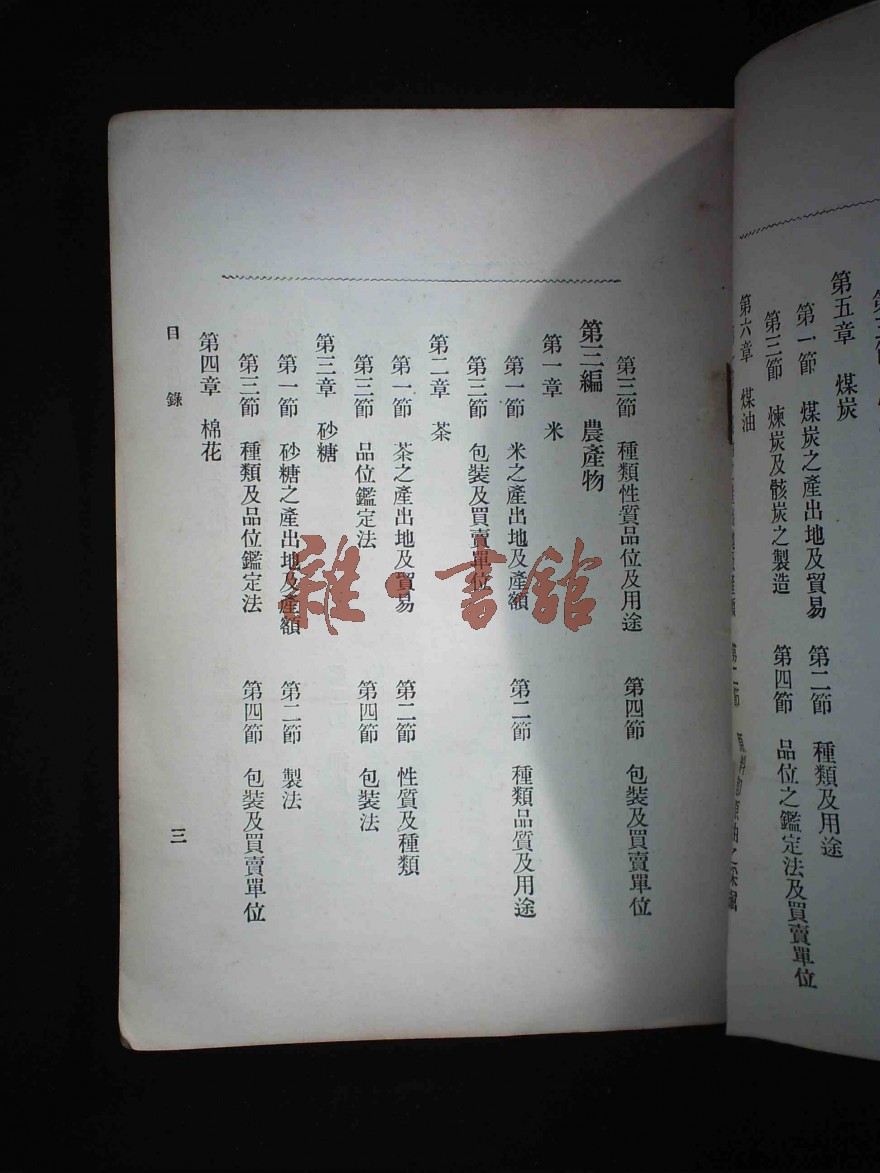 第五章　煤炭
第一節　煤炭之產出地及貿易　第二節　種類及用途
第三節　煉炭及骸炭之製造　第四節　品位之鑑定法及買賣單位
第六章　煤油
第三節　種類性質品位及用途　第四節　包裝及買賣單位
第三編　農產物
第一章　米
第一節　米之產出地及產額　第二節　種類品質及用途
第三節　包裝及買賣單位
第二章　茶
第一節　茶之產出地及貿易　第二節　性質及種類
第三節　品位鑑定法　第四節　包裝法
第三章　砂糖
第一節　砂糖之產出地及產額　第二節　製法
第三節　種類及品位鑑定法　第四節　包裝及買賣單位
第四章　棉花
目錄　三
雜·書館